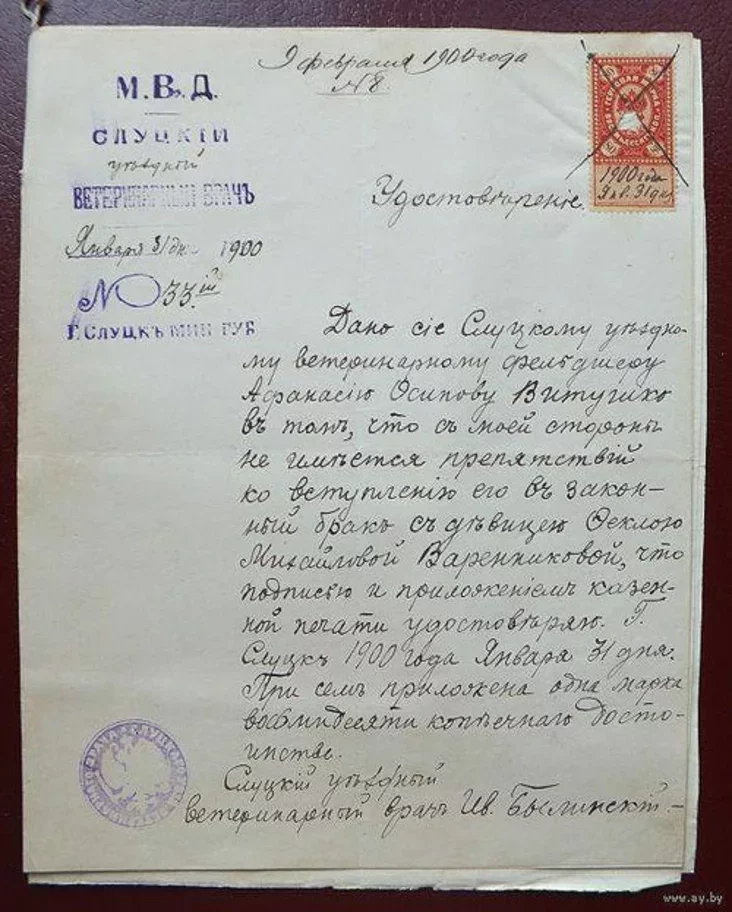 9 февраля 1900 года
№ 8.
М.В.Д.
СЛУЦКІЙ
уѣздный
ВЕТЕРИНАРНЫЙ ВРАЧЪ
Января 31 дня 1900
№ 33.ій
Г. СЛУЦКЪ МИН. ГУБ
1900 года
Янв. 31 дня
Удостовѣреніе.
Дано сіе Слуцкому уѣздно-
му ветеринарному фельдшеру
Афанасію Осипову Витушко
въ томъ, что съ моей стороны
не имѣется препятствій
ко вступленію его въ закон-
ный бракъ съ дѣвицею Ѳеклою
Михайловой Варенниковой, что
подписью и приложеніемъ казен-
ной печати удостовѣряю. Г.
Слуцкъ 1900 года Января 31 дня.
При семъ приложена одна марка
восьмидесяти копѣечнаго досто-
инства.
Слуцкій уѣздный
ветеринарный врачъ Ив. Былинскій
www.ay.by